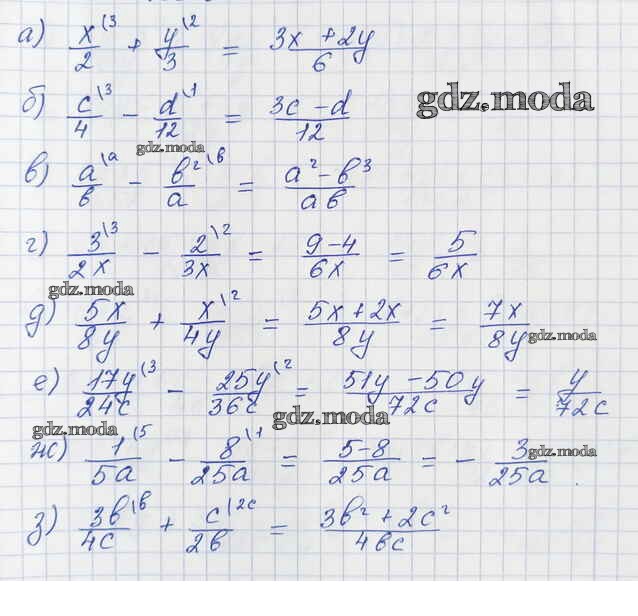 а) x/2 \3 + y/3 \2 = (3x + 2y)/6
б) c/4 \3 − d/12 \1 = (3c − d)/12
gdz.moda
gdz.moda
в) a/b \a − b²/a \b = (a² − b³)/ab
г) 3/2x \3 − 2/3x \2 = (9−4)/6x = 5/6x
gdz.moda
д) 5x/8y + x/4y \2 = (5x + 2x)/8y = 7x/8y
gdz.moda
е) 17y/24c (3 − 25y/36c (2 = (51y − 50y)/72c = y/72c
gdz.moda
gdz.moda
ж) 1/5a (5 − 8/25a \1 = (5−8)/25a = − 3/25a .
gdz.moda
з) 3b/4c \b + c/2b \2c = (3b² + 2c²)/4bc